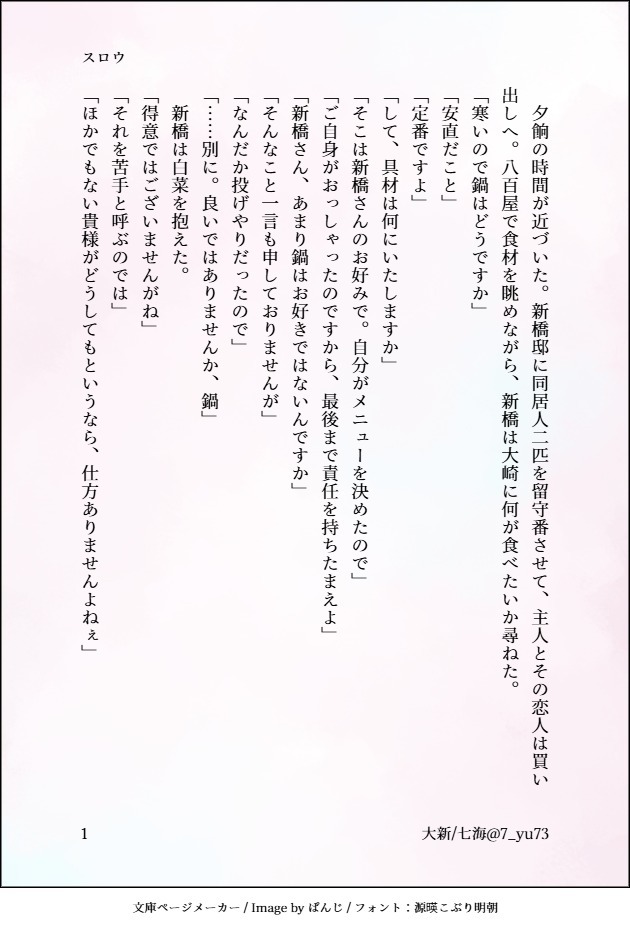 スロウ
　夕餉の時間が近づいた。新橋邸に同居人二匹を留守番させて、主人とその恋人は買い
出しへ。八百屋で食材を眺めながら、新橋は大崎に何が食べたいか尋ねた。
「寒いので鍋はどうですか」
「安直だこと」
「定番ですよ」
「して、具材は何にいたしますか」
「そこは新橋さんのお好みで。自分がメニューを決めたので」
「ご自身がおっしゃったのですから、最後まで責任を持ちたまえよ」
「新橋さん、あまり鍋はお好きではないんですか」
「そんなこと一言も申しておりませんが」
「なんだか投げやりだったので」
「……別に。良いではありませんか、鍋」
　新橋は白菜を抱えた。
「得意ではございませんがね」
「それを苦手と呼ぶのでは」
「ほかでもない貴様がどうしてもというなら、仕方ありませんよねぇ」
1
大新/七海@7_yu73
文庫ページメーカー / Image by ぱんじ / フォント：源暎こぶり明朝